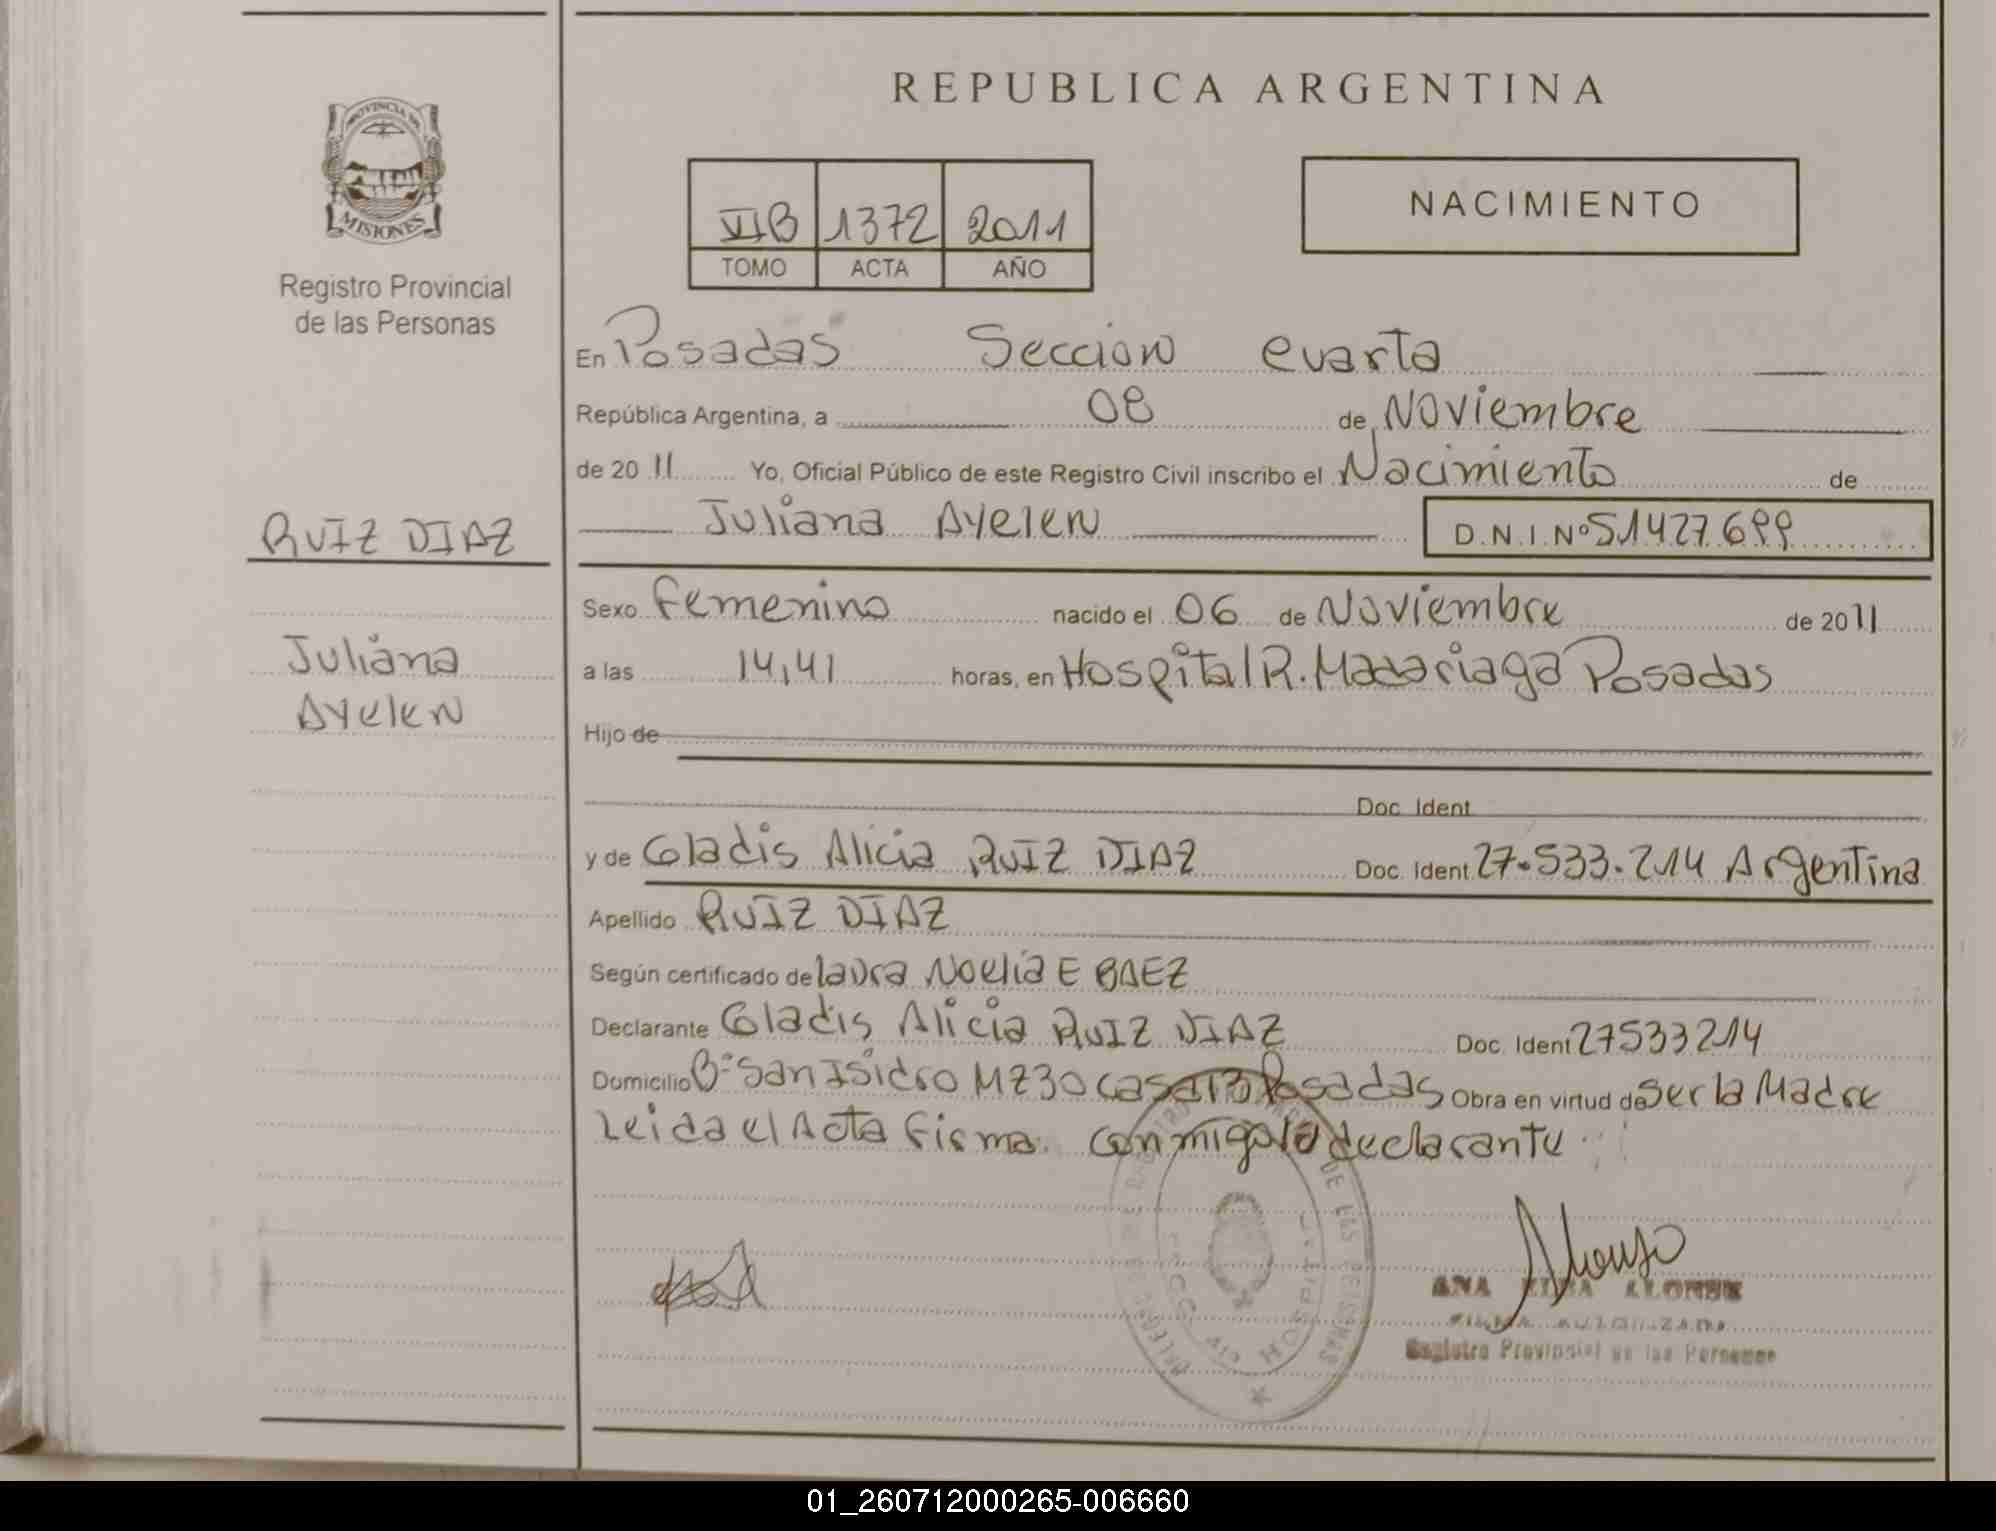 REPUBLICA ARGENTINA
PROVINCIA DE
MISIONES
Registro Provincial
de las Personas
VIB 1372 2011
TOMO ACTA AÑO
NACIMIENTO
En Posadas Seccion cuarta
República Argentina, a 08 de Noviembre
de 2011 Yo, Oficial Público de este Registro Civil inscribo el Nacimiento de
Juliana Ayelen D.N.I.Nº 51427699
RUIZ DIAZ
Juliana
Ayelen
Sexo Femenino nacido el 06 de Noviembre de 2011
a las 14,41 horas, en Hospital R. Madariaga Posadas
Hijo de
Doc. Ident
y de Gladis Alicia RUIZ DIAZ Doc. Ident. 27.533.214 Argentina
Apellido RUIZ DIAZ
Según certificado de laura Noelia E BAEZ
Declarante Gladis Alicia RUIZ DIAZ Doc. Ident 27533214
Domicilio Bº San Isidro MZ30 casa 13 Posadas Obra en virtud de Ser la Madre
Leida el Acta firma conmigo la declarante
DE LAS PERSONAS
HOSPITAL
ANA ALONSO
Registro Provincial de las Personas
01_260712000265-006660